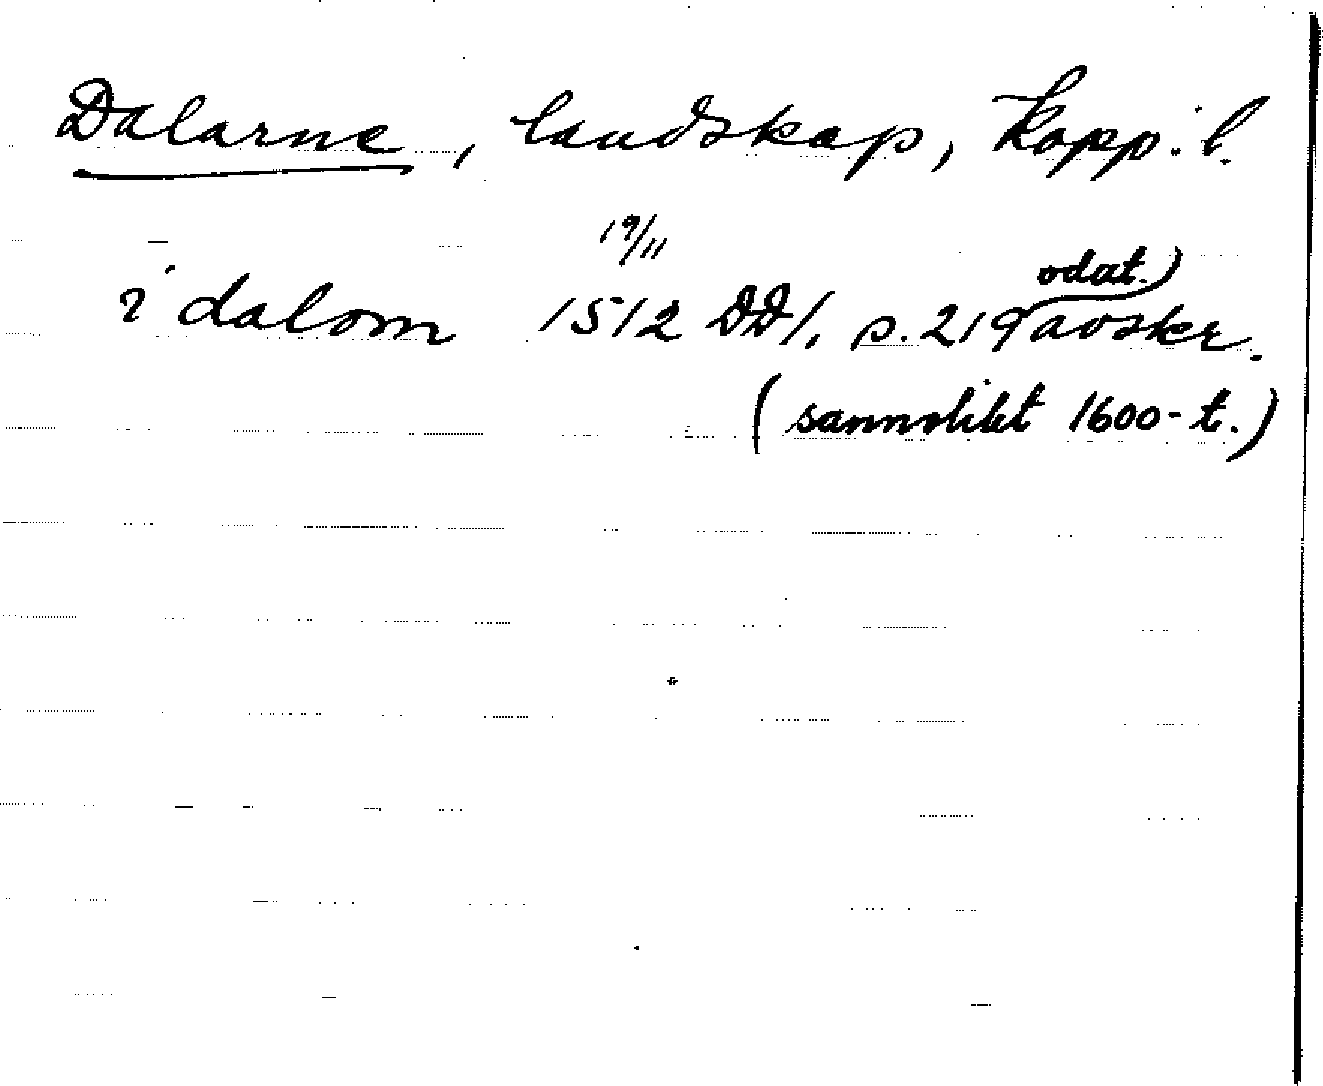 Dalarne, landskap, Kopp. l.
19/11
i dalom 1512 DD 1, s. 219 odat.) avskr.
(sannolikt 1600-t.)